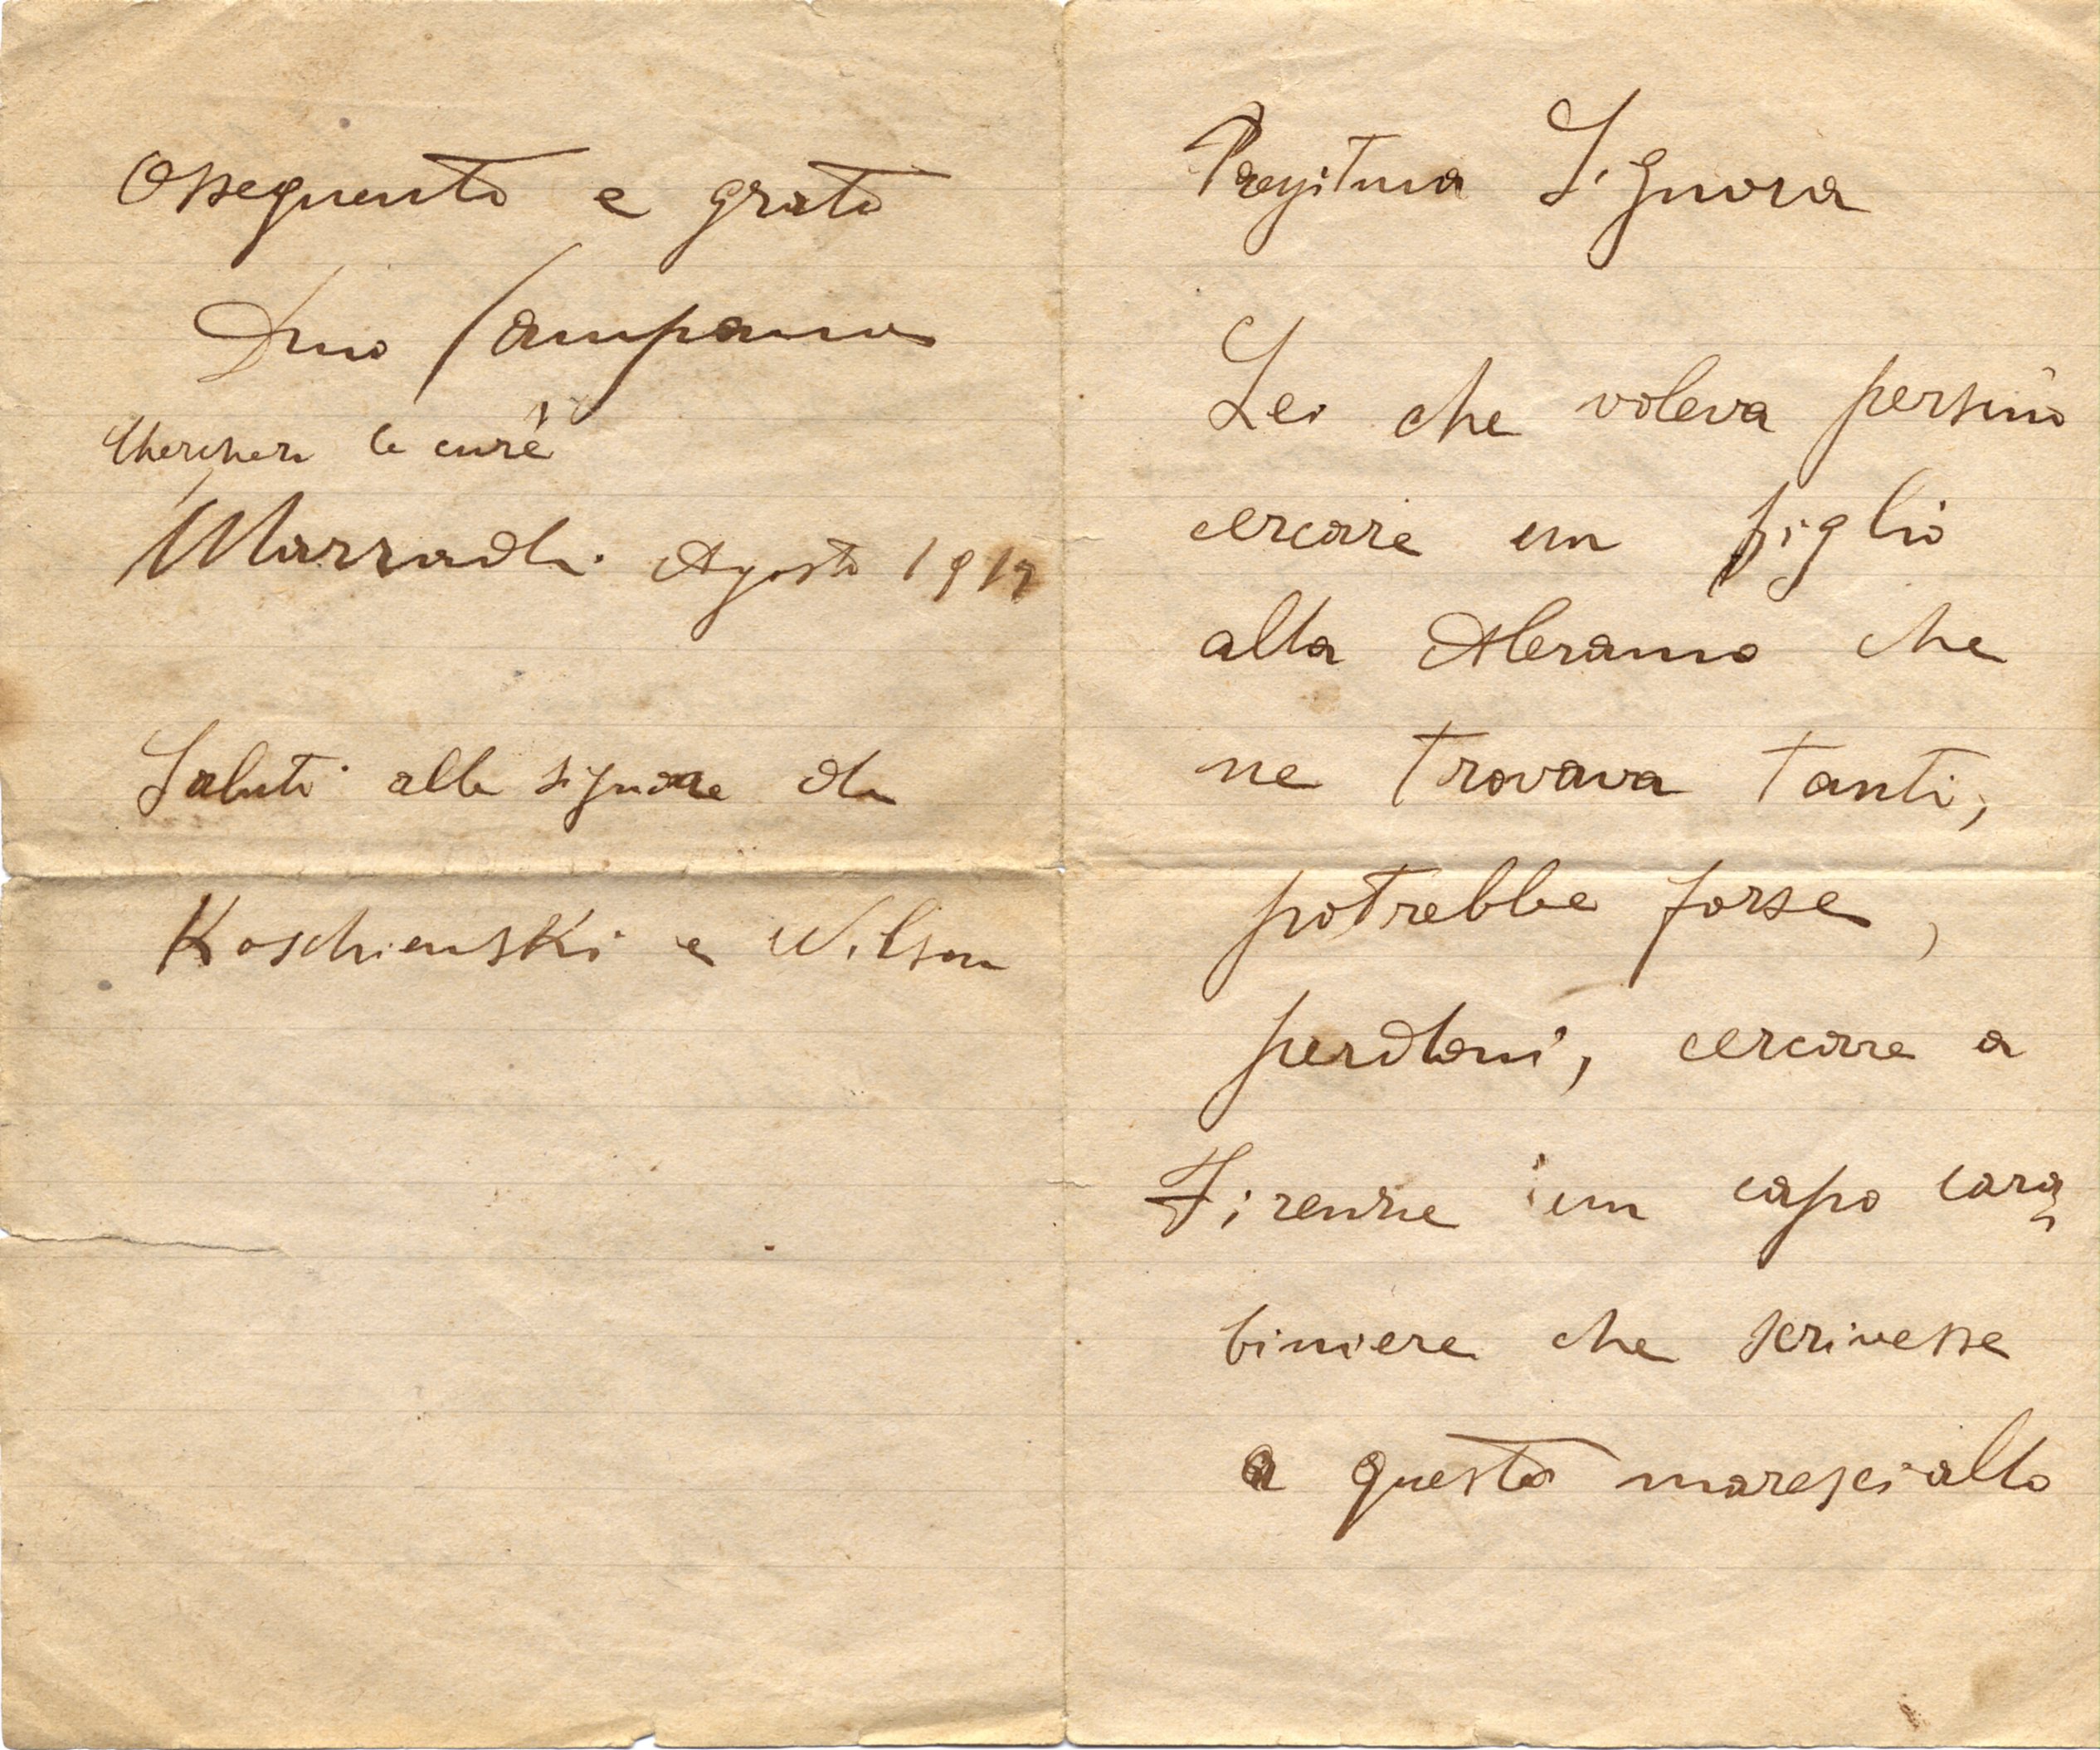 Pregitma Signora
Lei che voleva persino
cercare un figlio
alla Aleramo che
ne trovava tanti,
potrebbe forse,
perdoni, cercare a
Firenze un capo cara=
biniere che scrivesse
a questo maresciallo
Ossequento e grato
Dino Campana
Chercher le curé
Marradi Agosto 1917
Saluti alle signore De
Koschienski e Wilson